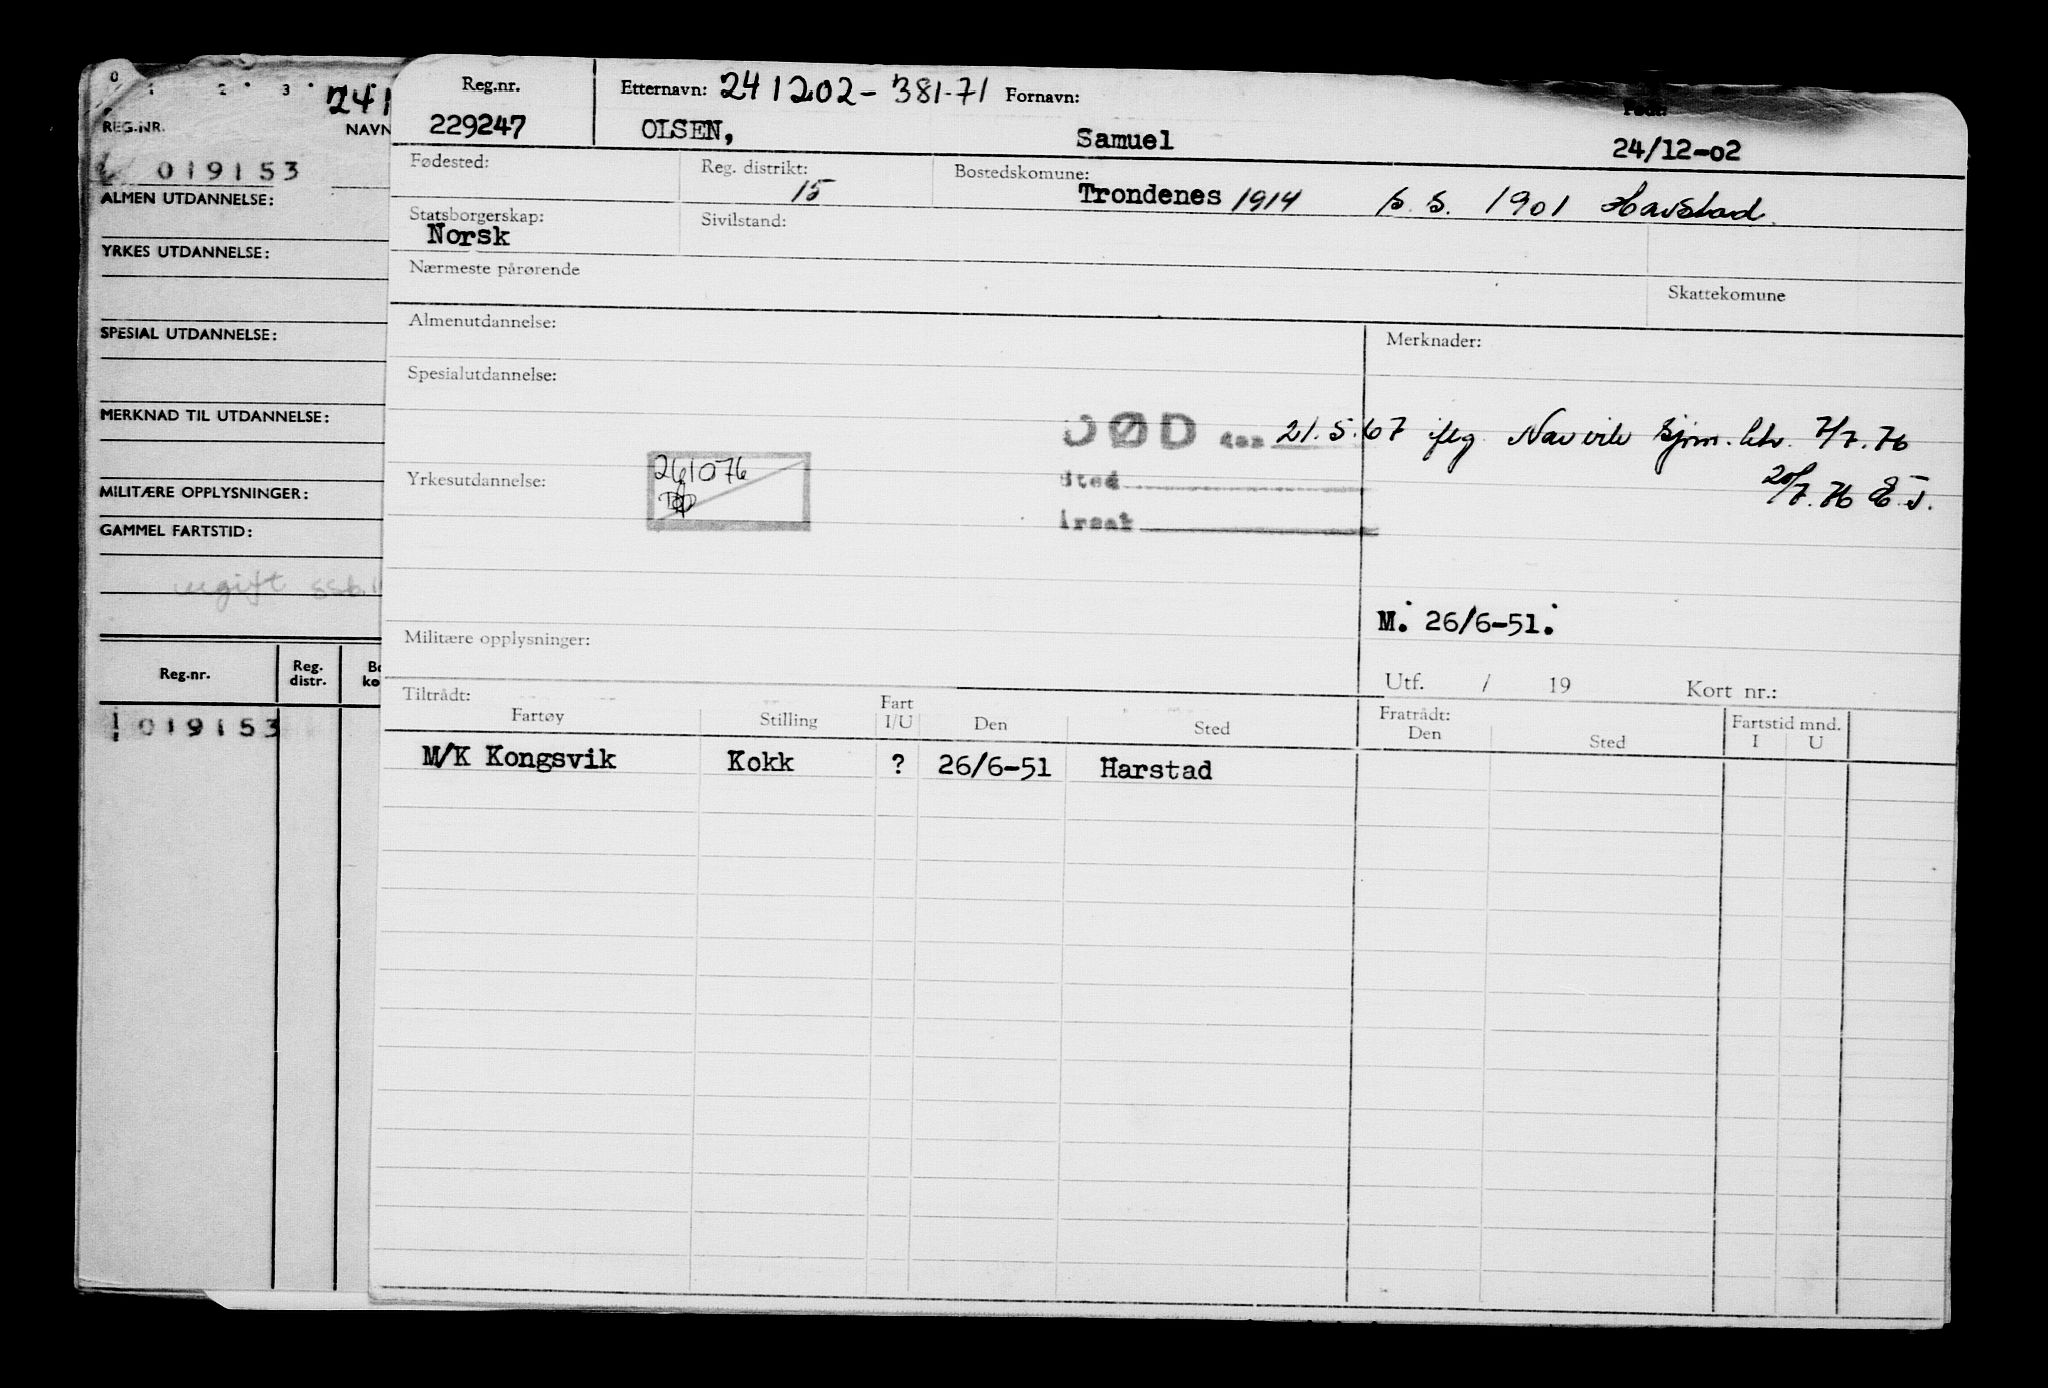 0 1 2 3
241
REG.NR.
NAVN
019153
ALMEN UTDANNELSE:
YRKES UTDANNELSE:
SPESIAL UTDANNELSE:
MERKNAD TIL UTDANNELSE:
MILITÆRE OPPLYSNINGER:
GAMMEL FARTSTID:
Reg.nr.
Reg. distr.
019153
Reg.nr.
229247
Etternavn: 241202-381-71 Fornavn:
OLSEN, Samuel
Født:
24/12-02
Fødested:
Reg. distrikt:
15
Bostedskomune:
Trondenes 1914 s.s. 1901 Harstad.
Statsborgerskap:
Norsk
Sivilstand:
Nærmeste pårørende
Skattekomune
Almenutdannelse:
Merknader:
Spesialutdannelse:
DØD den 21.5.67 iflg Narvik sjøm. ktr. 7/7.76
Sted
20/7.76 E.J.
Årsak
Yrkesutdannelse:
261076
M: 26/6-51:
Militære opplysninger:
Utf. / 19 Kort nr.:
Tiltrådt:
Fartøy Stilling Fart I/U Den Sted
Fratrådt:
Den Sted
Fartstid mnd.
I U
M/K Kongsvik Kokk ? 26/6-51 Harstad